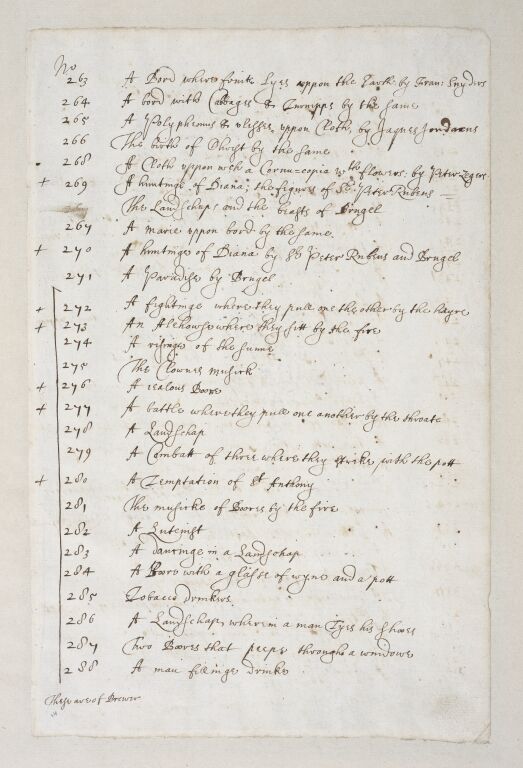 No
263 A Bord where fruite Lyes uppon the Earth by Fran: Snyders
264 A bord with Cabbages & Turnipps by the same
265 A Polyphemus & ulisses uppon Cloth, by Jaques Jordaens
266 The birth of Christ by the same
268 A Cloth uppon wch a Cornu=copia wth flowers. by Peter Segers
+ 269 A huntinge of Diana; the figures of Sr. Peter Rubens
The Landschaps and the beasts of Brugel
267 A marie uppon bord by the same
+ 270 A huntinge of Diana by Sr. Peter Rubens and Brugel
271 A Paradise by Brugel
+ 272 A fightinge where they pull one the other by the hayre
+ 273 An Alehowse where they sitt by the fire
274 A of the same
275 The Clownes musick
+ 276 A jealous Boore
+ 277 A battle where they pull one another by the throate
278 A Landschap
279 A Combatt of three where they strike with the pott
+ 280 A Temptation of St Anthony
281 The musicke of Boores by the fire
282 A Lutenist
283 A dauncinge in a Landschap
284 A Boore with a glasse of wyne and a pott
285 Tobacco drinkers
286 A Landschap, wherein a man Tyes his shooes
287 Two Boores that peepe throughe a windowe
288 A man fillinge drinke
These are of Brewer